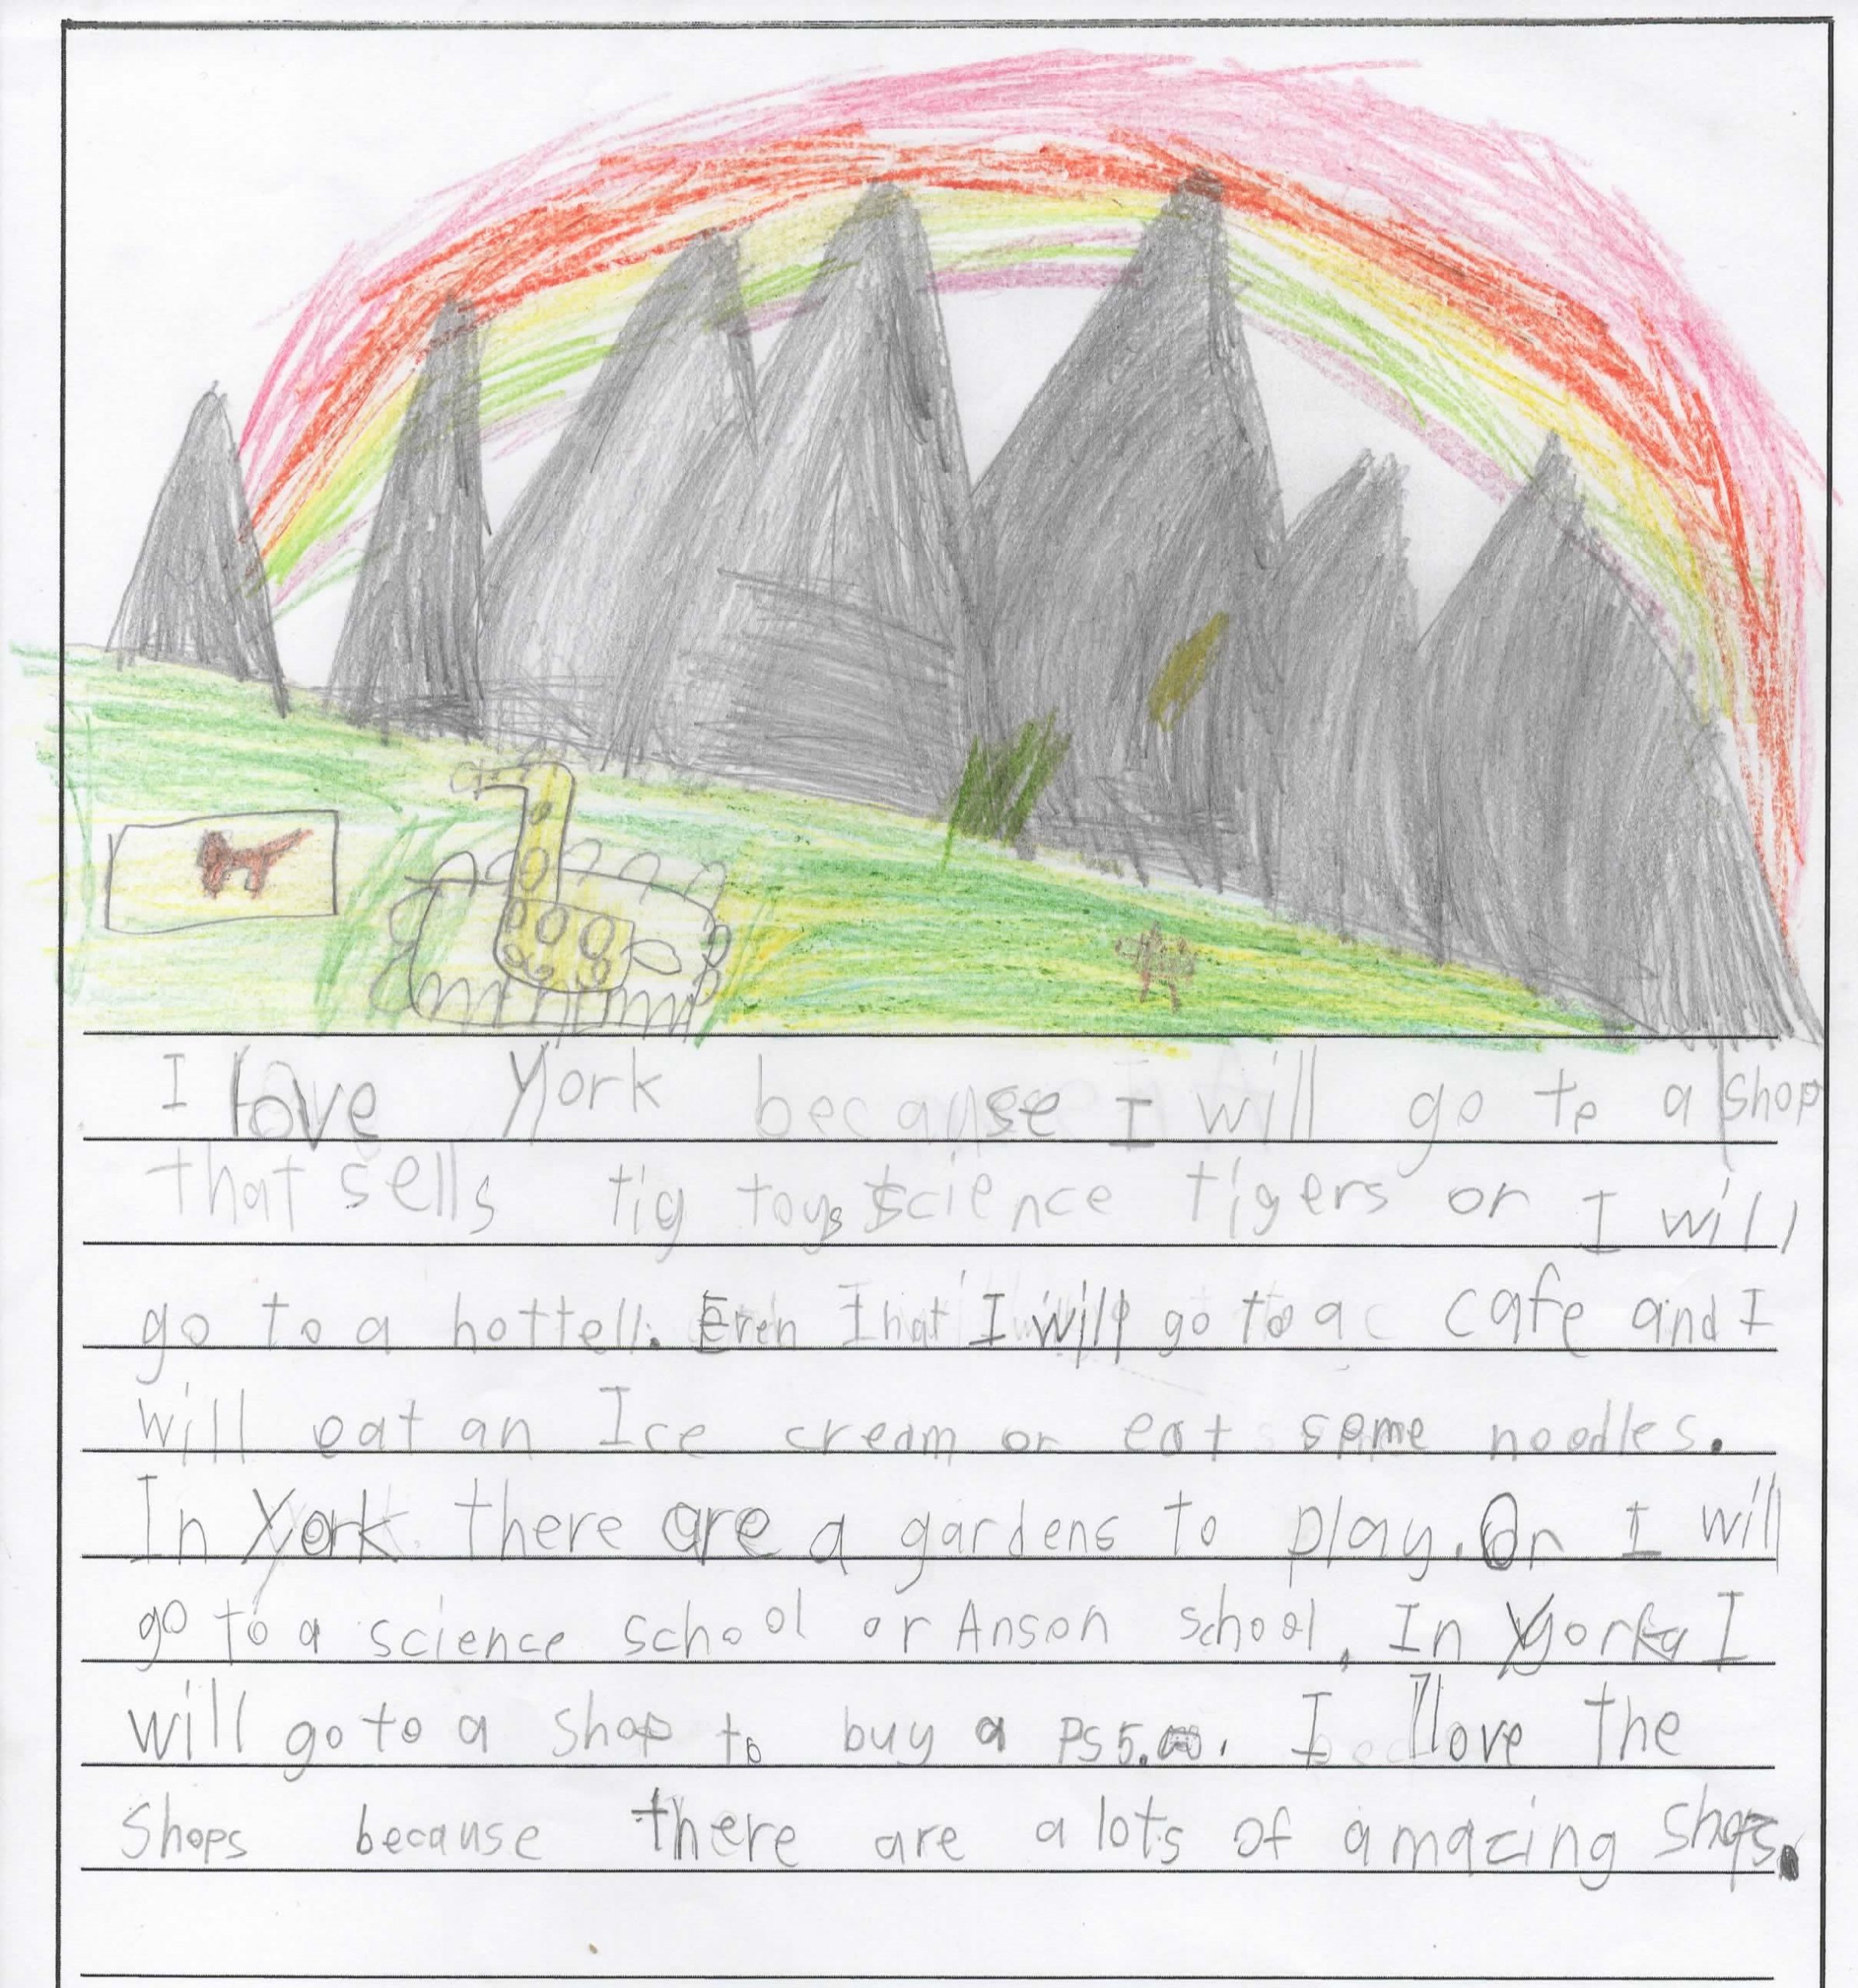 I love York because I will go to a shop
that sells tig toys science tigers or I will
go to a hottell. Even that I will go to a cafe and I
will eat an Ice cream or eat some noodles.
In York there are a gardens to play. Or I will
go to a science school or Anson school. In York I
will go to a shop to buy a PS5. I love the
Shops because there are a lots of amazing shops.